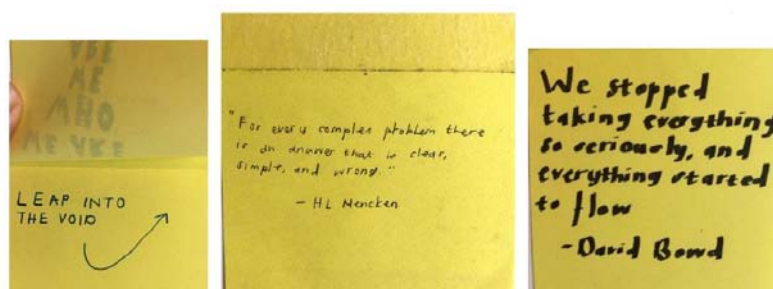 WE ARE
WHO
WE
ARE
LEAP INTO
THE VOID
"For every complex problem there
is an answer that is clear,
simple, and wrong."
- HL Mencken
We stopped
taking everything
so seriously, and
everything started
to flow
- David Bowd